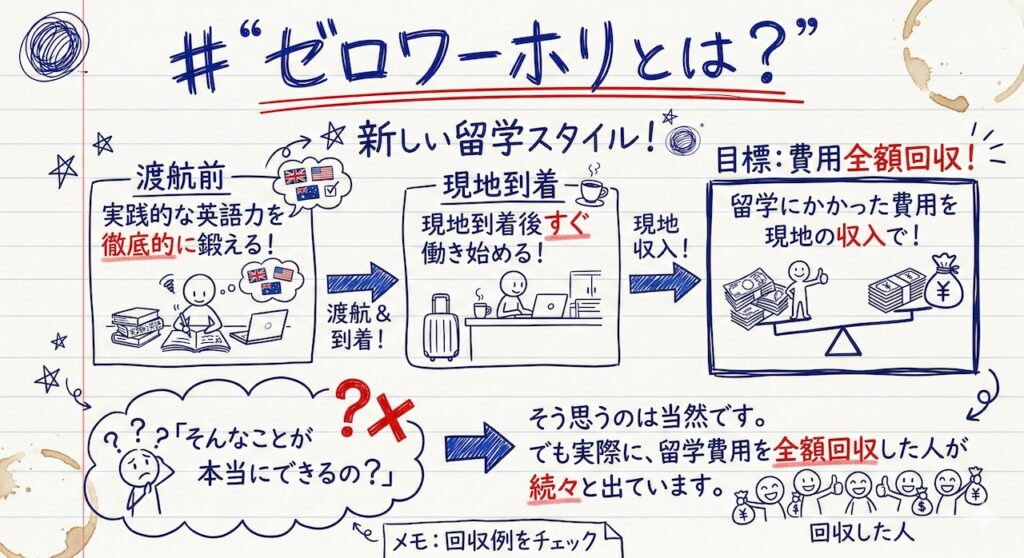 #“ゼロワーホリとは？”
新しい留学スタイル！
渡航前
実践的な英語力を
徹底的に鍛える！
渡航＆
到着！
現地到着
現地到着後すぐ
働き始める！
現地
収入！
目標：費用全額回収！
留学にかかった費用を
現地の収入で！
¥
???
「そんなことが
本当にできるの？」
?×
そう思うのは当然です。
でも実際に、留学費用を全額回収した人が
続々と出ています。
¥ $ ¥ ¥
回収した人
メモ：回収例をチェック